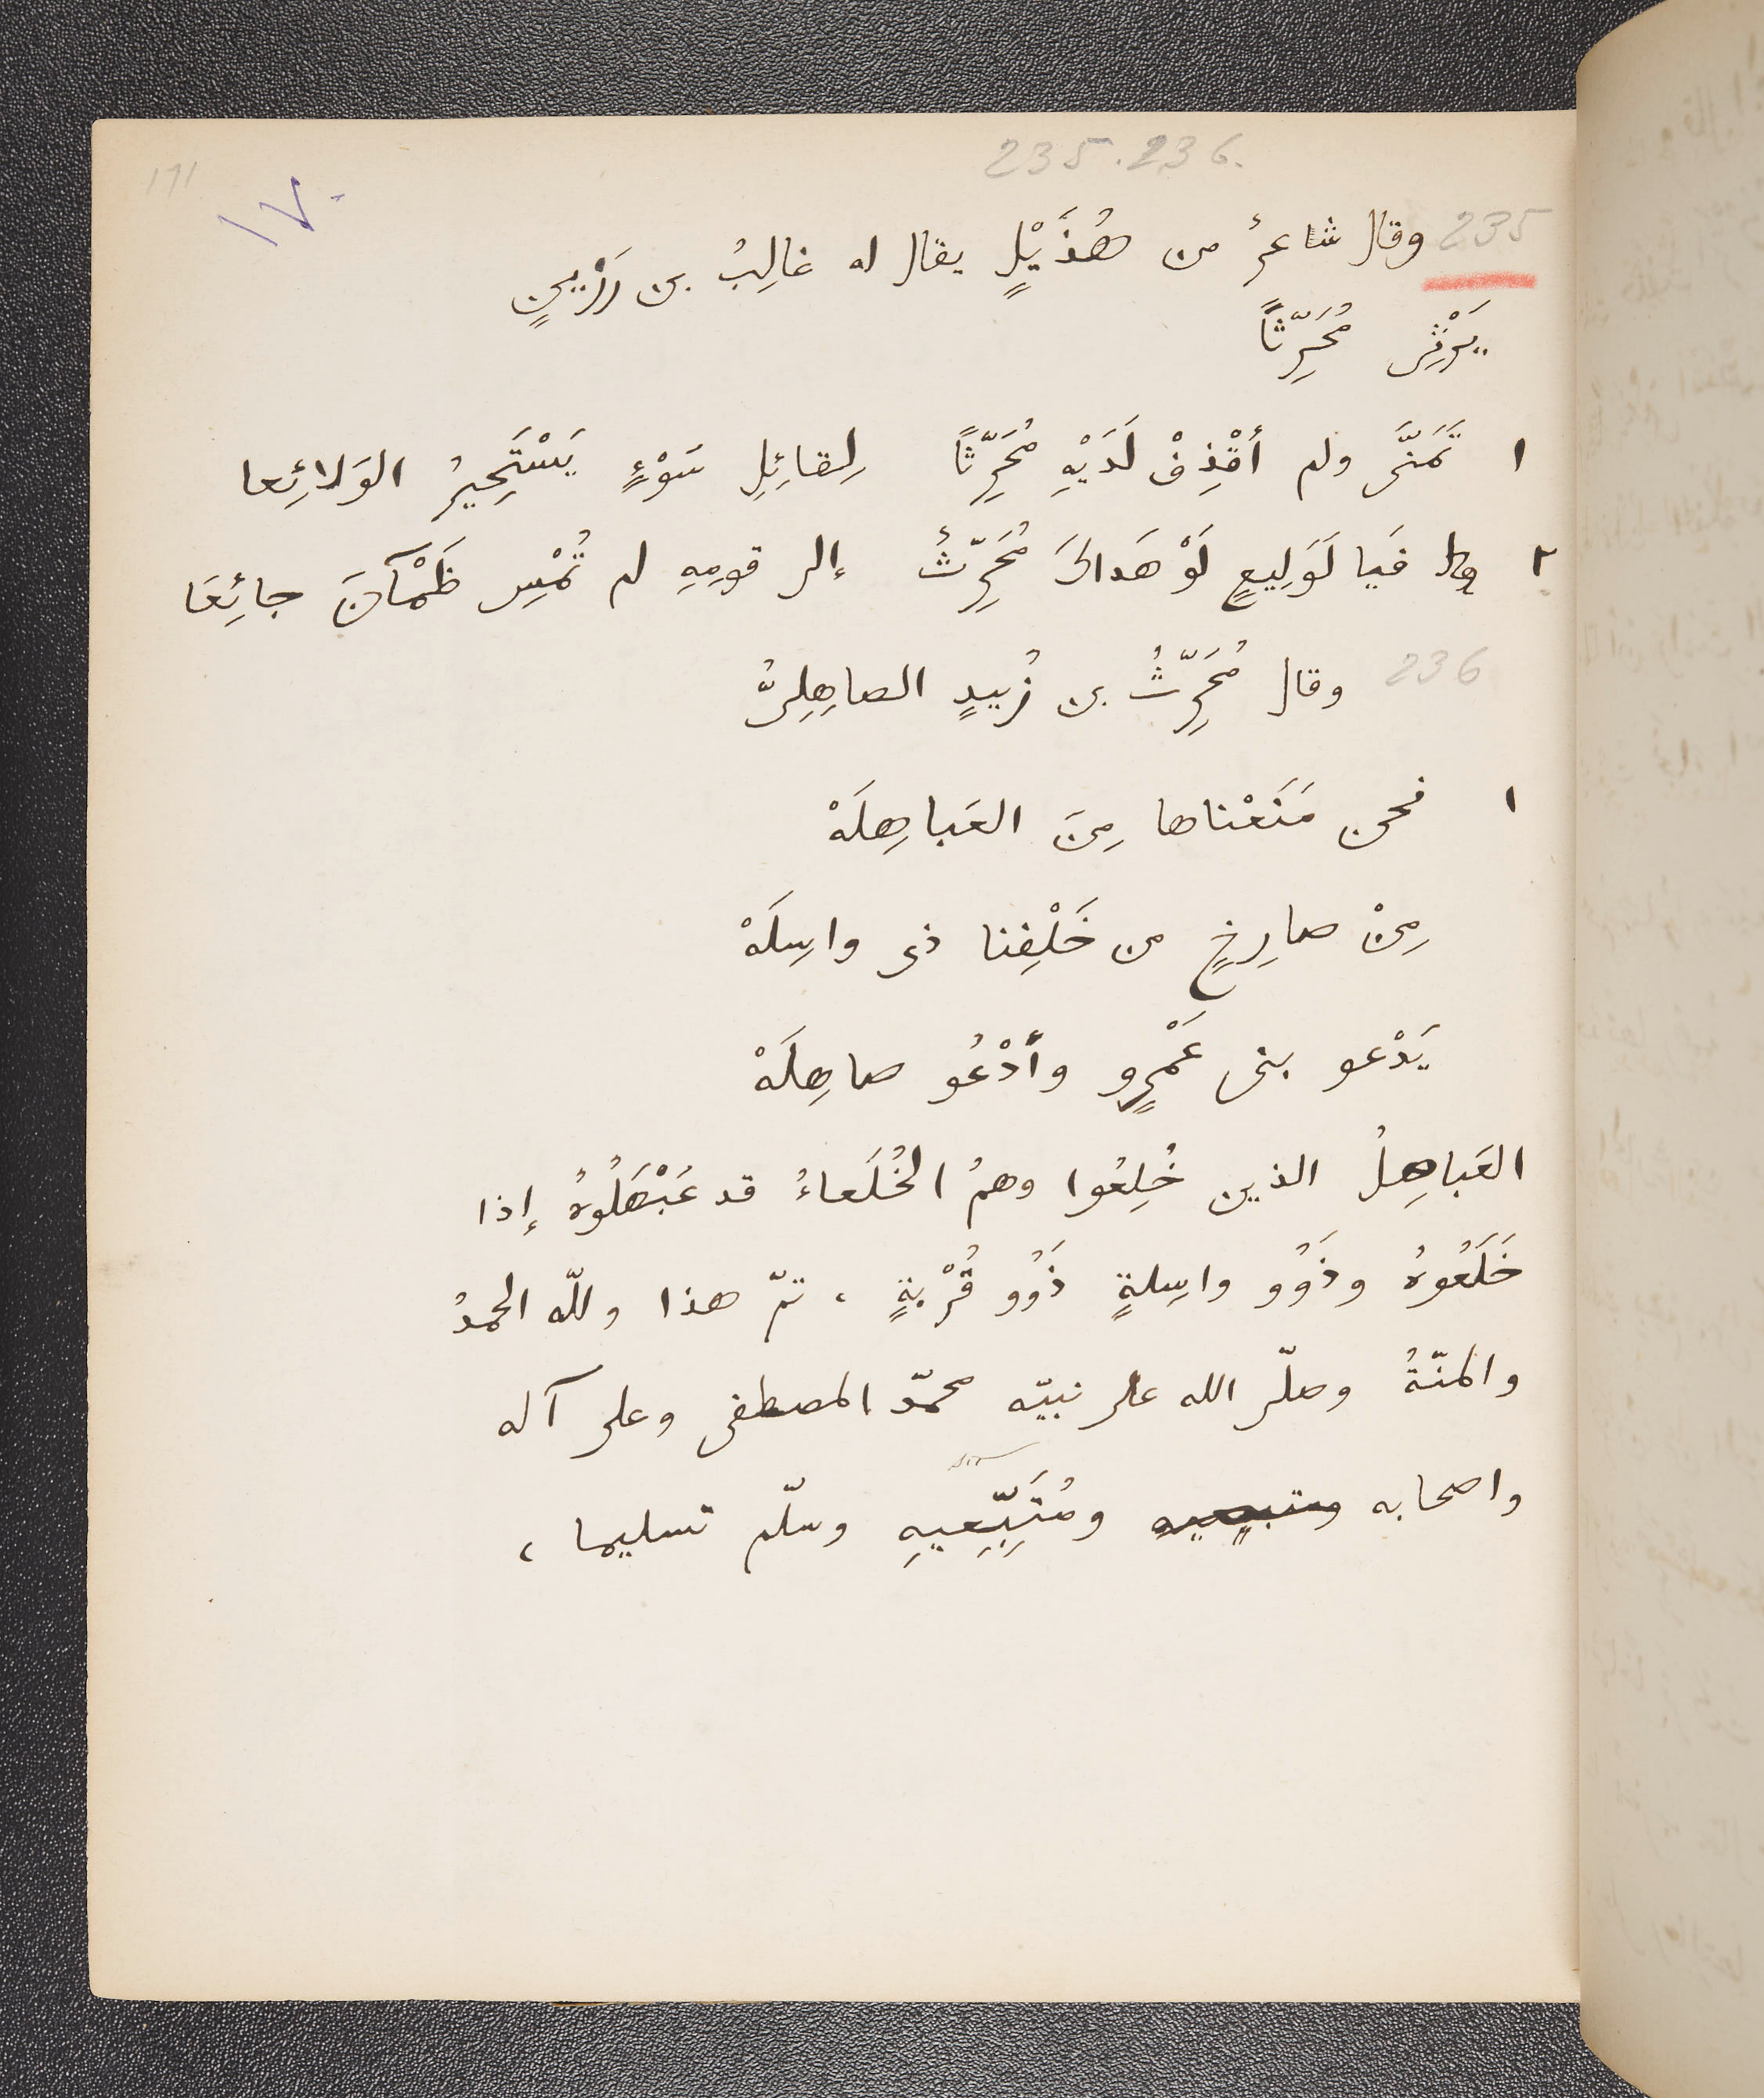 235.236.
171
١٧٠
235 وقال شاعرٌ من هُذَيْلٍ يقال له غالِبُ بن رَزِينٍ
يَرْثِى مُحَرِّثًا
١ تَمَنَّى ولم أَقْذِفْ لَدَيْهِ مُحَرِّثًا لِقائِلِ سَوْءٍ يَسْتَحِيرُ الوَلائِعا
٢ فَيا لَوَلِيعٍ لَوْ هَداكَ مُحَرِّثٌ إلى قومِهِ لم تُمْسِ ظَمْآنَ جائِعَا
236 وقال مُحَرِّثُ بن زُبيدٍ الصاهِلِىُّ
١ نحن مَنَعْناها مِنَ العَباهِلَهْ
مِنْ صارِخٍ من خَلْفِنا ذى واسِلَهْ
يَدْعو بنى عَمْرٍو وأَدْعُو صاهِلَهْ
العَباهِلُ الذين خُلِعُوا وهمُ الخُلَعاءُ قد عَبْهَلُوهُ إذا
خَلَعُوهُ وذَوُو واسِلةٍ ذَوُو قُرْبةٍ ، تمّ هذا وللّه الحمدُ
والمنّةُ وصلّى الله على نبيّه محمّد المصطفى وعلى آله
واصحابه ومُتَبِّعيهِ وسلّم تسليما ،